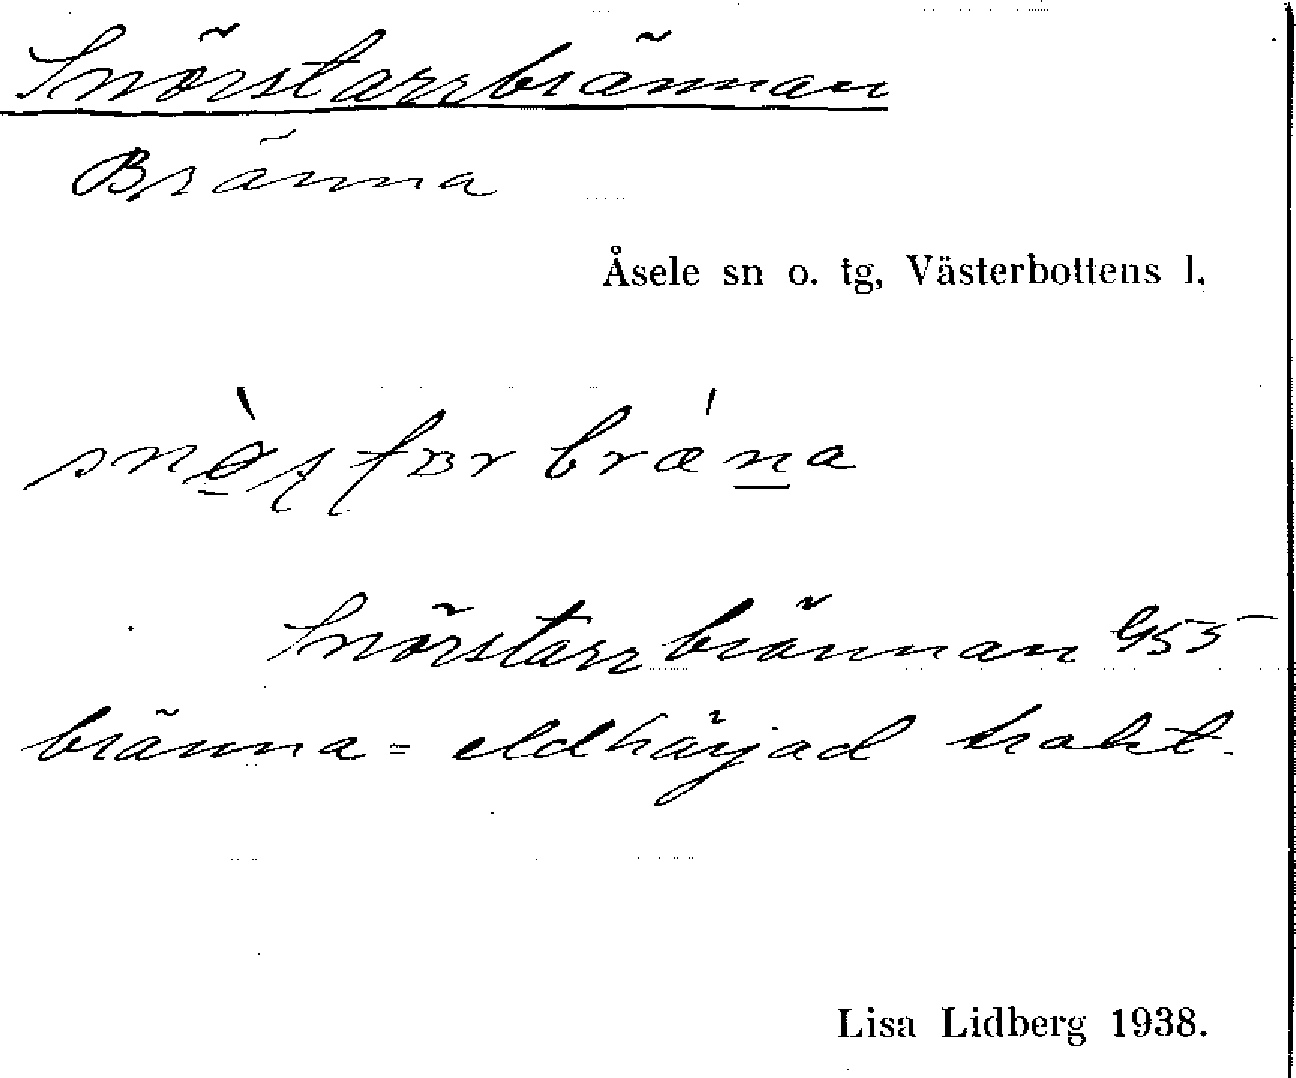 Snörstarrbrännan
Bränna
Åsele sn o. tg, Västerbottens l.
Snörstarrbrännan G55
bränna = eldhärjad trakt.
Lisa Lidberg 1938.